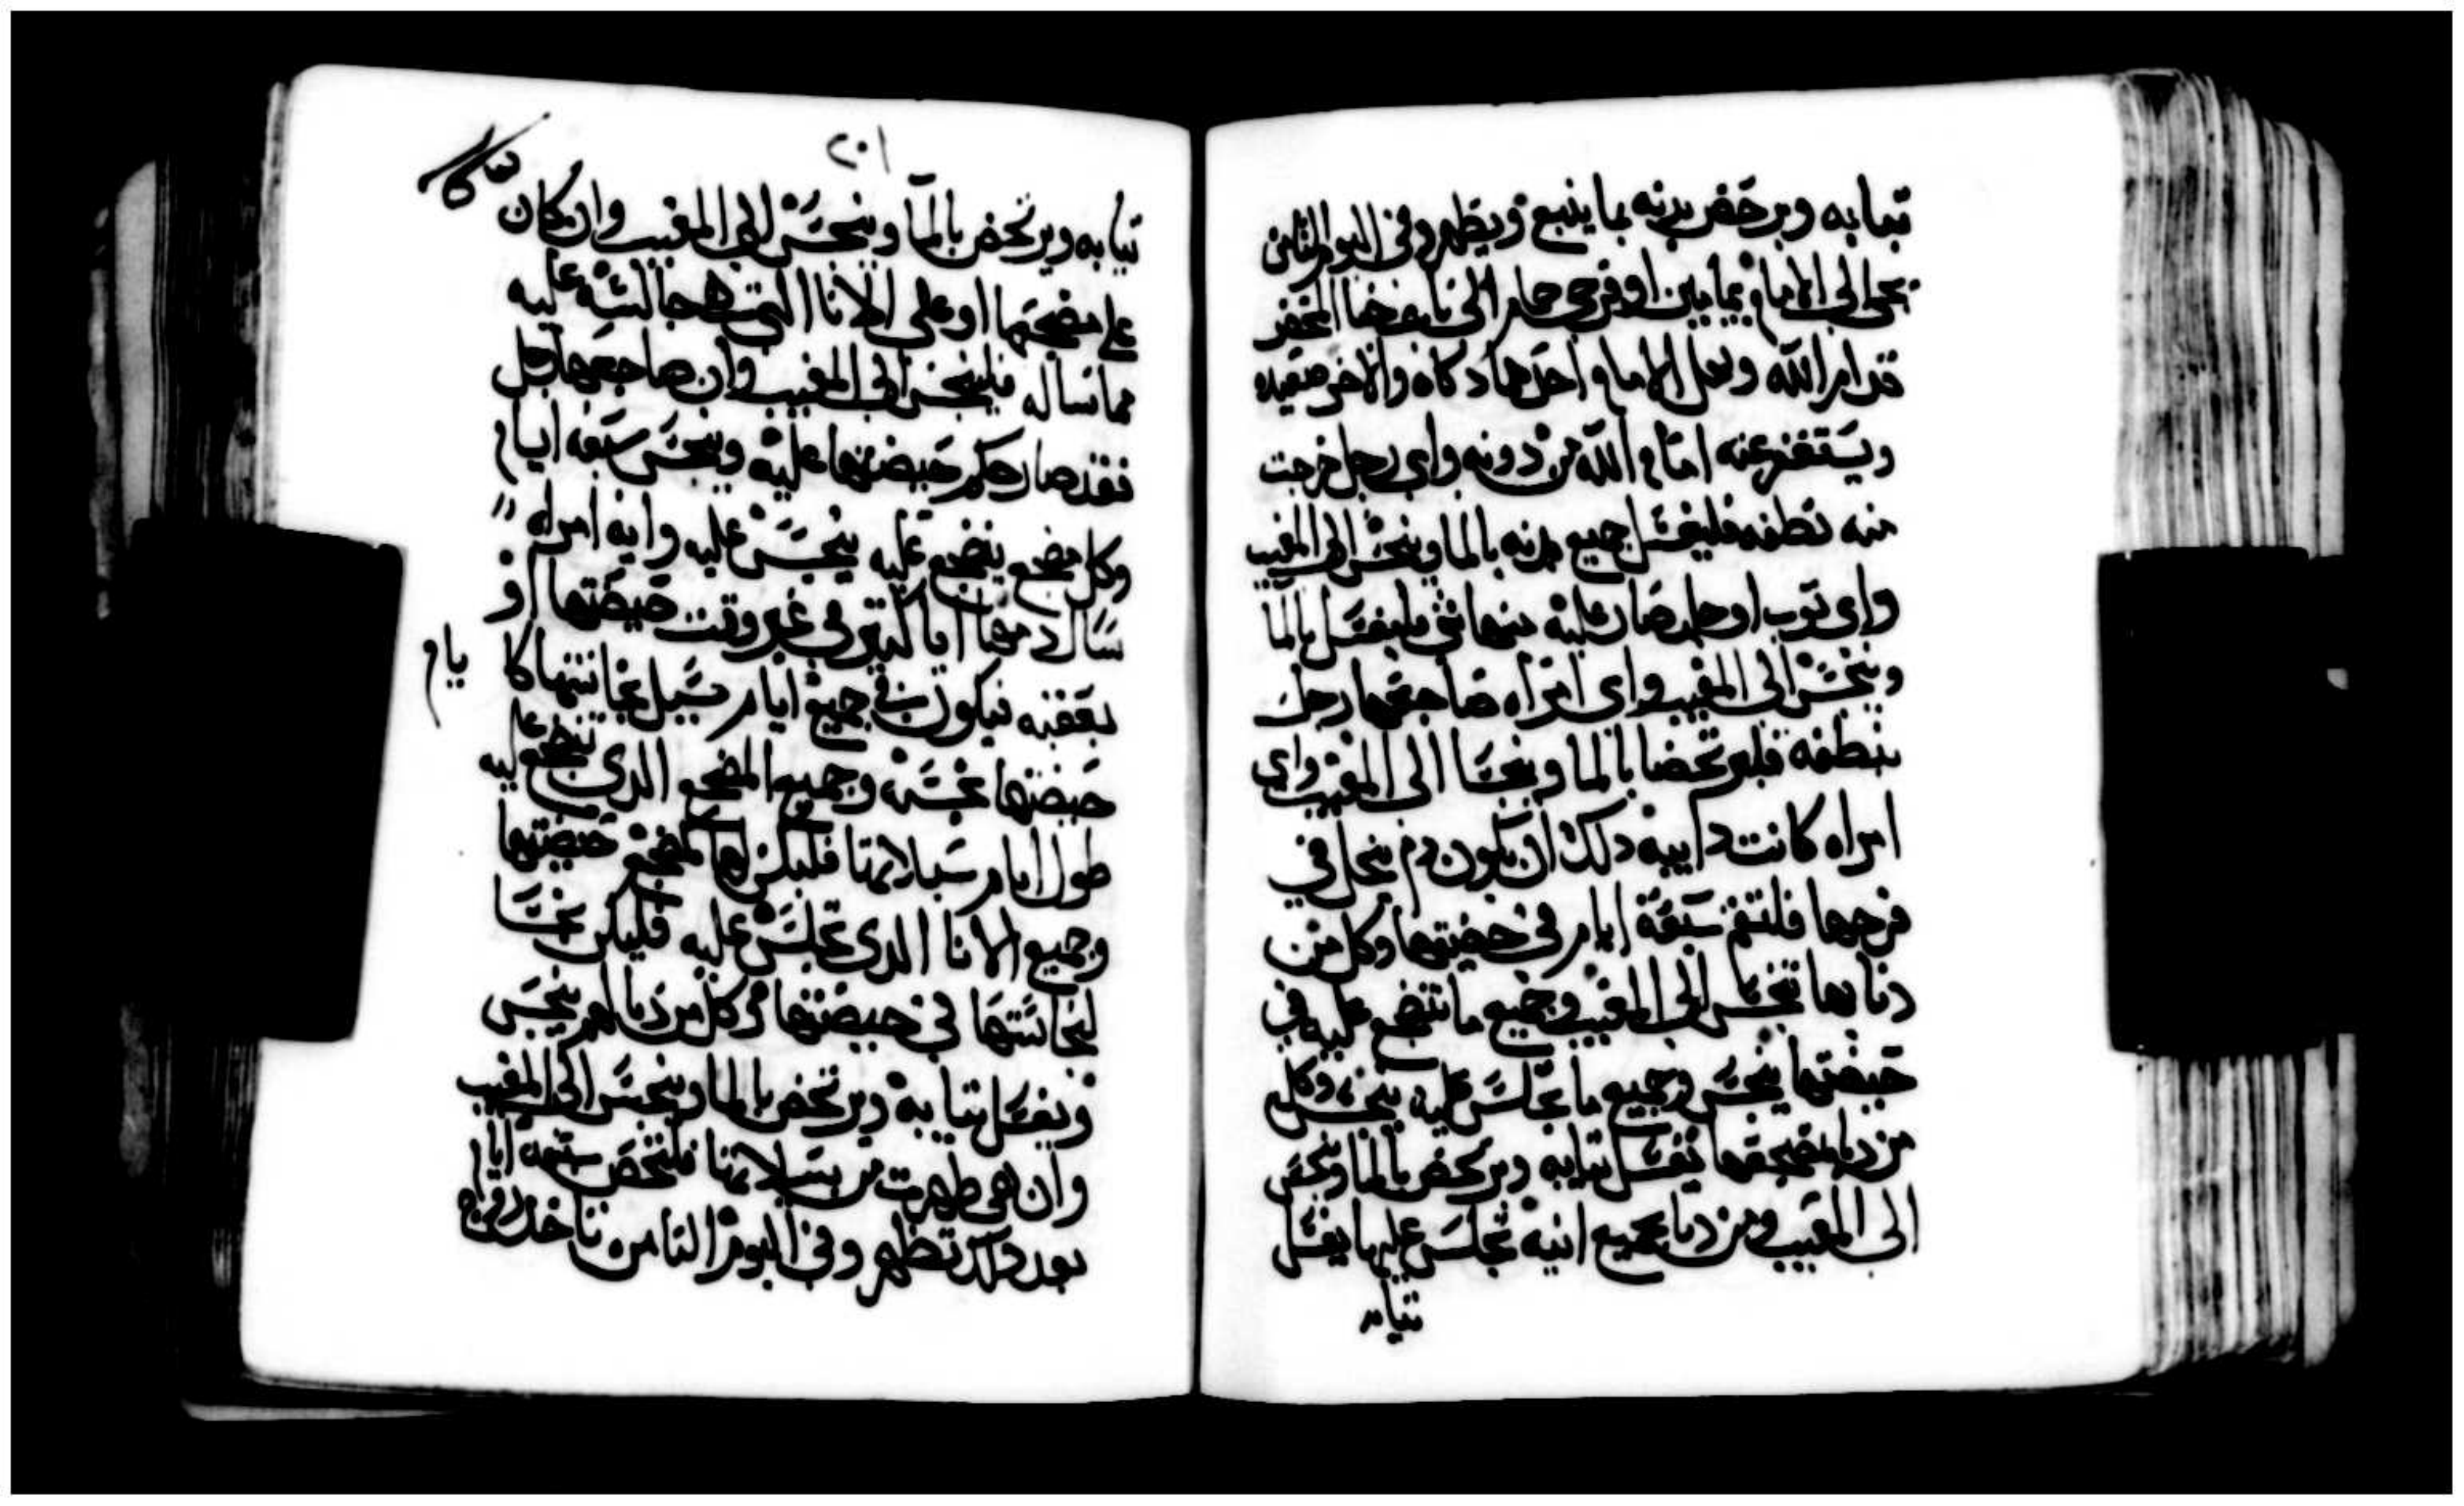 تيابه ويرحض بدنه بما ينبع ويطهر وفي اليوم الثامن
يجي الي الامام بيمامين او فرخي حمام الي باب خبا المحضر
قدام الله ويعمل الامام احدهما دكاه والاخر صعيده
ويستغفر عنه امام الله من دونه واي رجل خرجت
منه نطفه فليغسل جميع بدنه بالما وينجس الي المغيب
واي توب او جلد صار عليه منها شي فليغسل بالما
وينجس الي المغيب واي امراه ضاجعها رجل
بنطفه فليرتحضا بالما وينجسا الي المغيب واي
امراه كانت دايبه دلك ان يكون دم ينحل في
فرجها فلتقم سبعة ايام في حيضتها وكل من
دنا بها تنجس الي المغيب وجميع ما تنضجع عليه في
حيضتها ينجس وجميع ما تجلس عليه ينجس وكل
من دنا بمضجعها يغسل تيابه ويرتحض بالما وينجس
الي المغيب ومن دنا بجميع انيه تجلس عليها يغسل
تيابه
٢٠١
تيابه ويرتحض بالما وينجس الي المغيب وان كان
علي مضجعها او علي الانا التي هي جالسه عليه
مما تساله فلينجس الي المغيب وان ضاجعها رجل
فقد صار حكم حيضتها عليه وينجس سبعه ايام
وكل مضجع ينضجع عليه ينجس عليه وايه امراه
سال دمها اياما كتير في غير وقت حيضتها او
بعقبه فيكون في جميع ايام سيل نجاستها كا يام
حيضتها نجسه وجميع المضجع الدي تنضجع عليه
طول ايام سيلانها فليكن لها كمضجع حيضتها
وجميع الانا الدي تجلس عليه فليكن نجسا
لنجاستها في حيضتها وكل من دنا بهم ينجس
ويغسل تيابه ويرتحض بالما وينجس الي المغيب
وان هي طهرت من سيلانها فلتحص سبعه ايام
بعد دلك تطهر وفي اليوم التامن تاخد